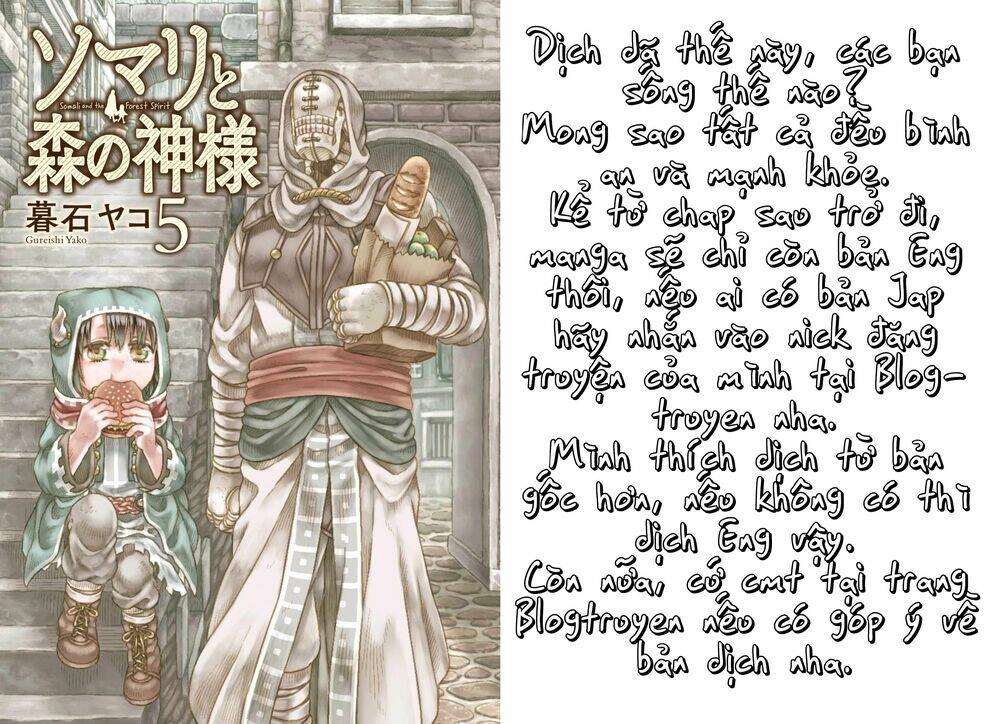 ソマリと
Somali and the Forest Spirit
森の神様
暮石ヤコ
Gureishi Yako
5
Dịch dã thế này, các bạn
sống thế nào?
Mong sao tất cả đều bình
an và mạnh khỏe.
Kể từ chap sau trở đi,
manga sẽ chỉ còn bản Eng
thôi, nếu ai có bản Jap
hãy nhắn vào nick đăng
truyện của mình tại Blog-
truyen nha.
Mình thích dịch từ bản
gốc hơn, nếu không có thì
dịch Eng vậy.
Còn nữa, cứ cmt tại trang
Blogtruyen nếu có góp ý về
bản dịch nha.